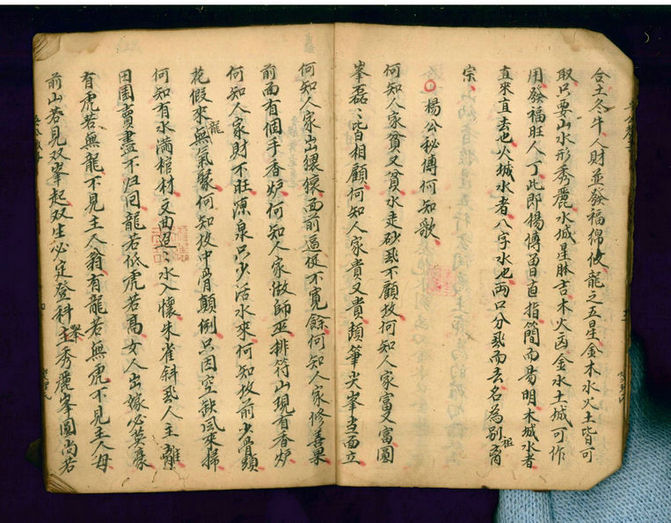 合土冬牛人財並發福綿攸龍之五星金木水火土皆可
取只要山水形秀麗水城星脉吉木火凶金水土城可作
用發福旺人丁此即楊傳旨直指簡而易明木城水者
直來直去也火城水者八字水也兩口分飛而去名為別離
祖
宗
楊公秘傳何知歌
何知人家貧又貧水走砂飛不顧坟何知人家富又富圓
峯磊々皆相顧何知人家貴又貴顏筆尖峯当面立
何知人家出猥猥面前逼促不寬餘何知人家修善果
前面有個手香炉何知人家做師巫排符山現有香炉
何知人家財不旺源泉只少活水來何知坟前少骨頭
花假來龍無氣脉何知坟中骨顛倒只因空缺風來掃
何知有水滿棺材交曲返水入懷朱雀斜飛人主離
田園賣盡不归回龍若低虎若高女人出嫁必英豪
有虎若無龍不見主人翁有龍若無虎不見主人母
前山若見双峯起双生必定登科主秀麗峯圓尚若